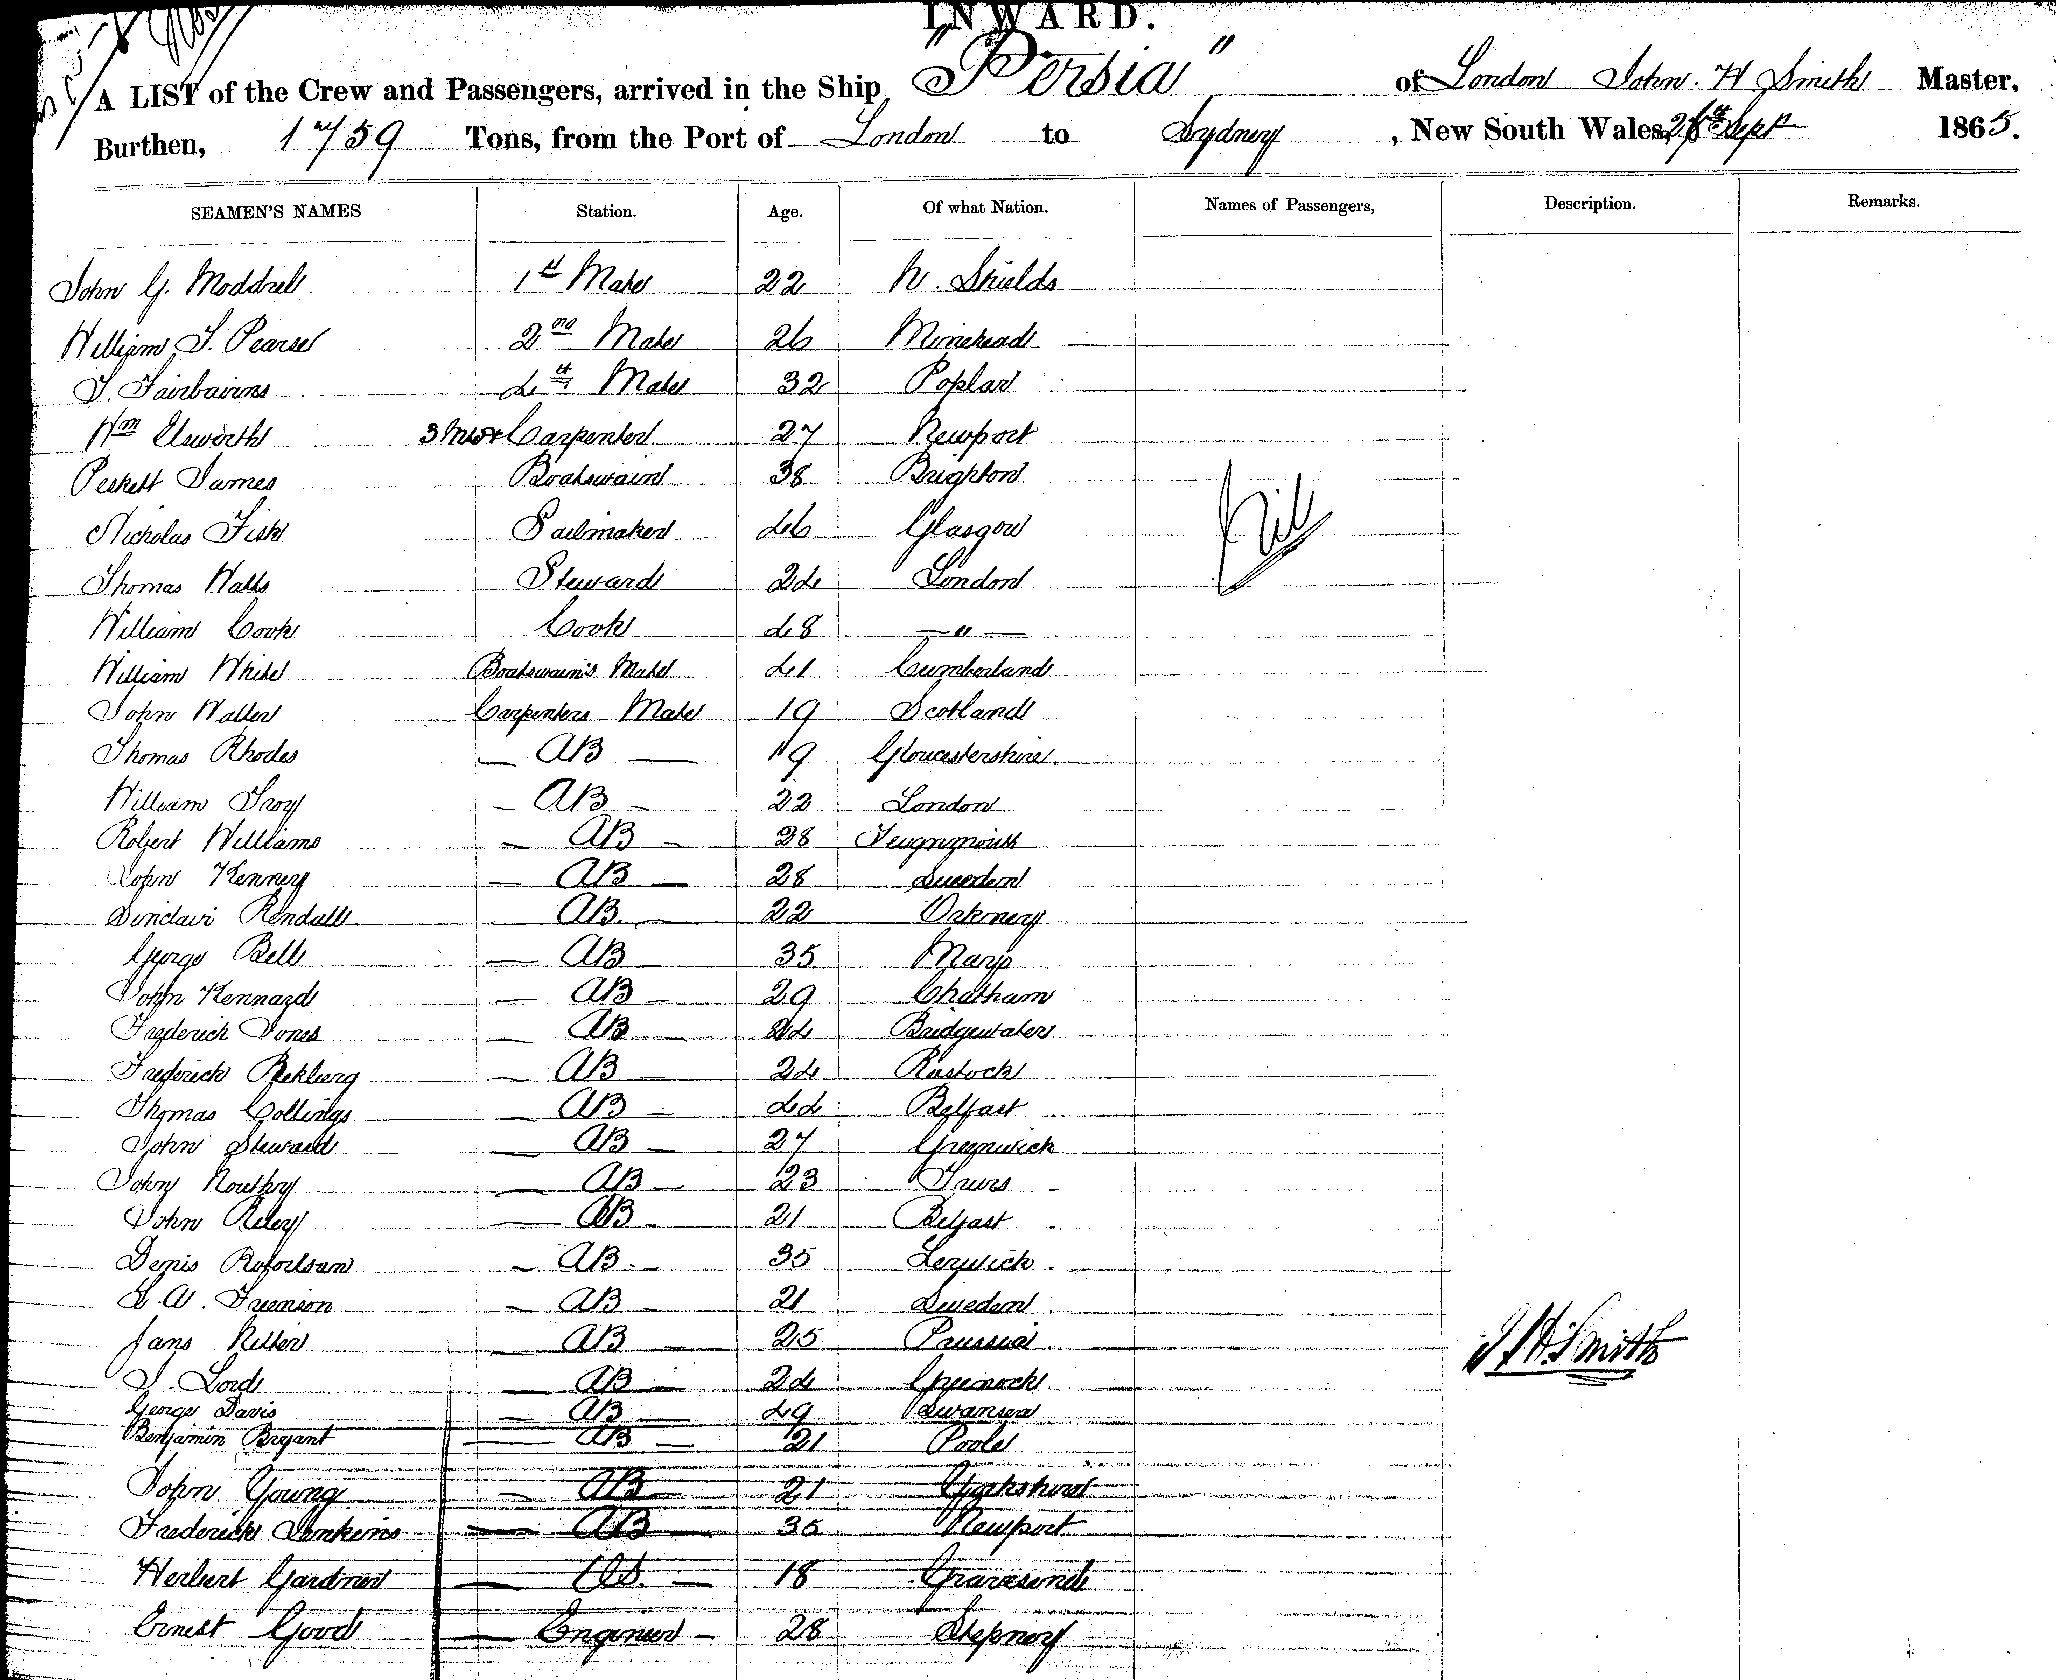 INWARD.
A LIST of the Crew and Passengers, arrived in the Ship "Persia" of London John. H Smith Master,
Burthen, 1759 Tons, from the Port of London to Sydney, New South Wales, Sept 1865.
SEAMEN'S NAMES Station. Age. Of what Nation. Names of Passengers, Description. Remarks.
John G. 1st Mate 22 N. Shields
William J. Pearse 2nd Mate 26 Minehead
J. Fairbairns 4th Mate 32 Poplar
Wm Elsworth 3 Mate & Carpenter 27 Newport
Peskett James Boatswain 38 Brighton
Nicholas Fisk Sailmaker 46 Glasgow
Nil
Thomas Watts Steward 24 London
William Cook Cook 48 — " —
William White Boatswain's Mate 41 Cumberland
John Waller Carpenters Mate 19 Scotland
Thomas Rhodes — AB — 19 Gloucestershire.
William Troy — AB — 22 London
Robert Williams — AB — 38 Teignmouth
John Kenney — AB — 28 Sweden
Sinclair Rendall — AB. — 22 Orkney
George Bell — AB 35
John Kennard — AB — 29 Chatham
Frederick Jones — AB — 24 Bridgewater
Frederick — AB — 24 Rostock
Thomas Collings — AB — 44 Belfast
John Steward — AB — 27 Greenwich
John — AB — 23
John Riley — AB — 21 Belfast
Denis Robertson — AB. — 35 Lerwick.
— AB — 21 Sweden
Jans — AB — 25 Prussia
J H Smith
J. Lord — AB — 24 Greenock
George Davis — AB — 49 Swansea
Benjamin Bryant — AB — 21 Poole
John Young — AB — 21 Yorkshire
Frederick Jenkins — AB — 35 Newport
Herbert Gardner — OS. — 18 Gravesend
Ernest Good — Engineer — 28 Stepney